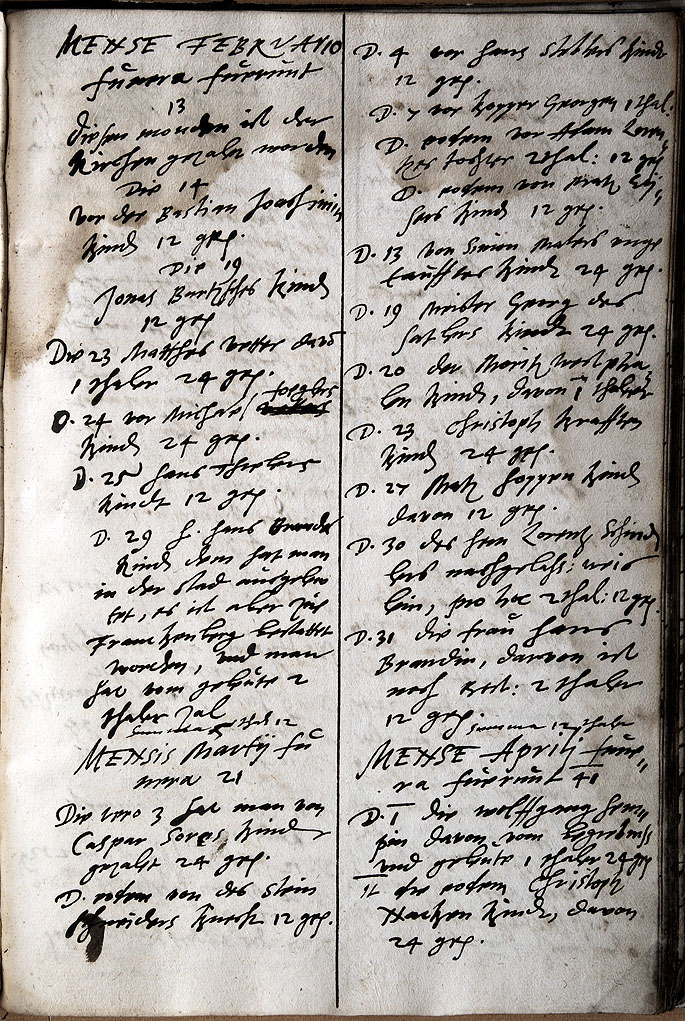 MENSE FEBRVARIO
funera fuerunt
13
diesen monden ist der
Kirchen gezalt worden
Die 14
vor der Bastian Joachimin
Kind 12 grs.
Die 19
Jonas Bartzsches Kind
12 grs
Die 23 Matthes vetter davon
1 thaler 24 grs.
D. 24 vor Michael
Kind 24 grs.
D. 25 hans Thielers
kindt 12 grs.
D. 29 h. hans
Kind dem hat man
in der stad ausgeleu
tet, es ist aber zue
Franckenberg bestattet
worden, und man
hat vom geleute 2
thaler zal
Summa thal 12
MENSIS Martij fu
nera 21
Die vero 3 hat man von
Caspar Kind
gezalt 24 grs.
D. eodem von des stein
schneiders knecht 12 grs.
D. 4 vor hans Kindt
12 grs.
D. 7 vor Georgen 1 thal:
D. eodem vor Adam Loren
tzes tochter 2 thal: 12 grs
D. eodem von Matz
Kind 12 grs.
D. 13 von Simon unge
taufftes Kind 24 grs.
D. 19 Meister Georg des
satlers Kindt 24 grs.
D. 20 der Moritz Westpha
len Kind, davon 1 thaler
D. 23 Christoph Krafften
Kind 24 grs.
D. 27 Matz Hoppen Kind
davon 12 grs.
D. 30 des hern Lorentz Schind
lers nachgelass: weib
lein, pro hoc 2 thal: 12 grs.
D. 31 die frau hans
Brandin, darvon ist
noch 2 thaler
12 grs
Summa 12 thaler
MENSE Aprilj fune
ra fuerunt 41
D. 1 die wolffgang
davon vom begrebnis
und geleute 1 thaler 24 grs
It die eodem Christoph
Hacken Kind, davon
24 grs.